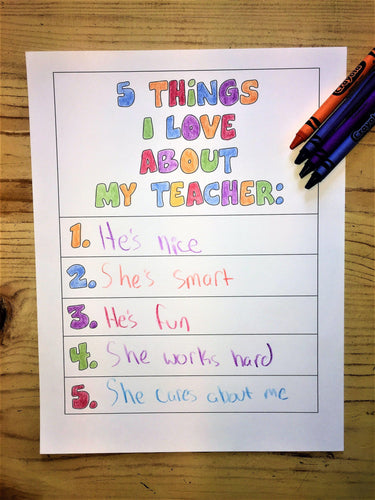 5 THiNGS
I LOVE
ABOUT
MY TEACHER:
1. He's nice
2. She's smart
3. He's fun
4. She works hard
5. She cares about me
Crayola